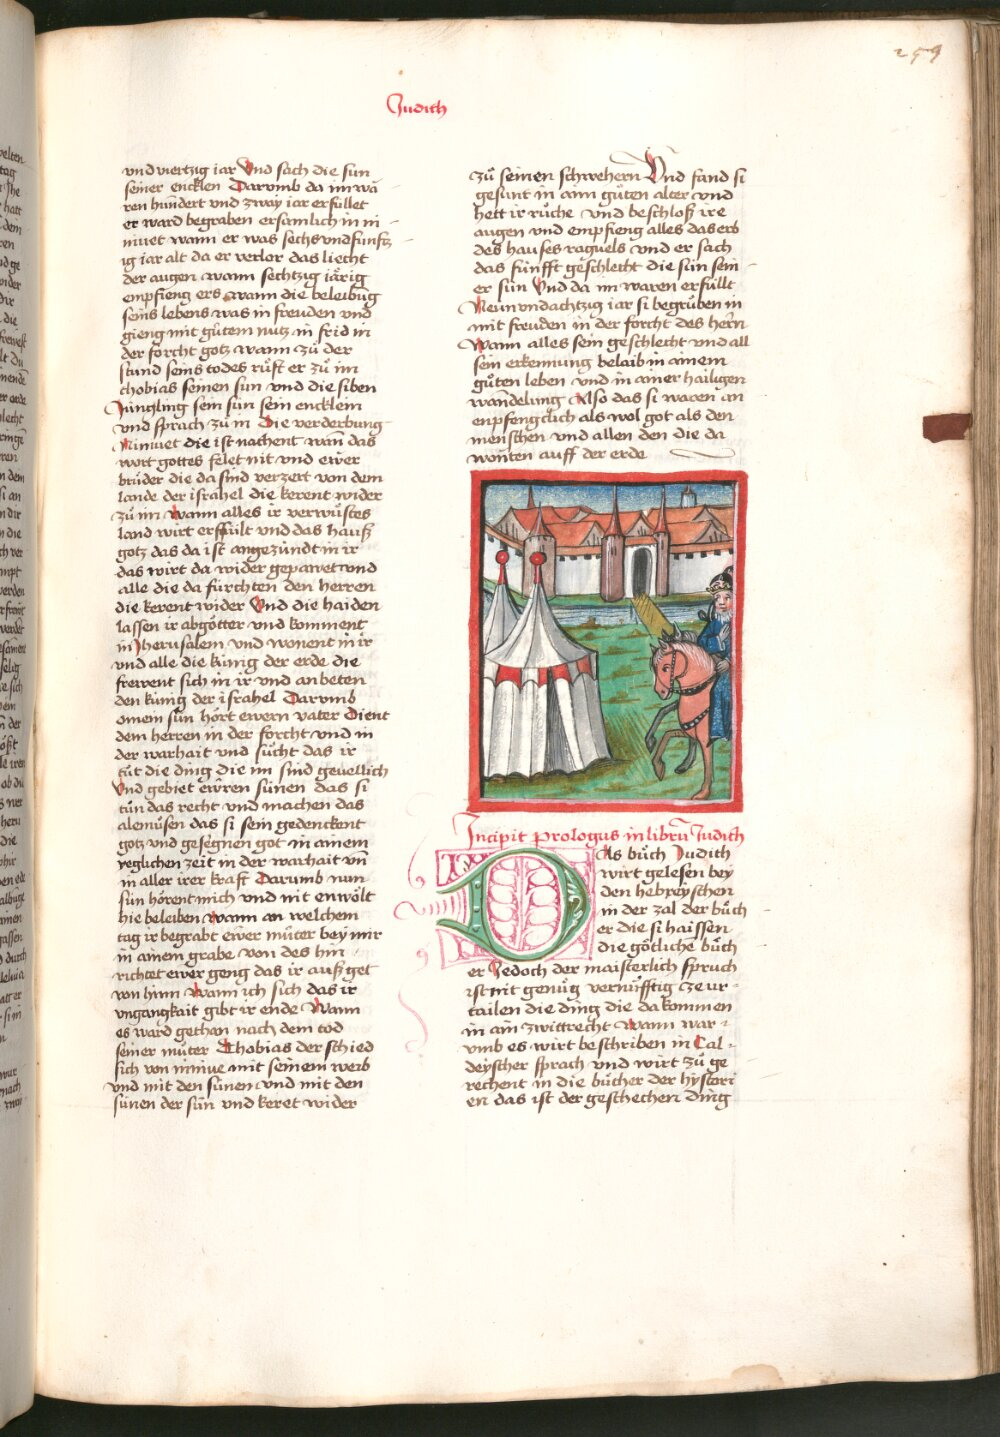 259
Judith
vnd viertzig iar Vnd sach die sün
seiner encklen Darvmb da im wā
ren hundert vnd zway iar erfüllet
er ward begraben ersamlich in ni
niuet wann er was sechs vnd funfz
ig iar alt da er verlor das liecht
der augen wann sechtzig iärig
empfieng ers wann die beleibūg
seins lebens was in freuden vnd
gieng mit gůtem nutz in frid in
der forcht gotz wann zů der
stund seins todes rüft er zů im
thobias seinen sun vnd die siben
Jüngling sein sün sein encklein
vnd sprach zů in Die verderbung
Niniuet die ist nachent wañ das
wort gottes felet nit vnd ewer
brůder die da sind verzert von dem
lande der israhel die kerent wider
zů im wann alles ir verwůstes
land wirt erfüllt vnd das hauß
gotz das da ist angezündt in ir
das wirt da wider gepawet vnd
alle die da fürchten den herren
die kerent wider Vnd die haiden
lassen ir abgötter vnd komment
in Jherusalem vnd wonent in ir
vnd alle die künig der erde die
frewent sich in ir vnd anbeten
den künig der israhel Darvmb
omein sün hört ewern vater Dient
dem herren in der forcht vnd in
der warhait vnd sůcht das ir
tüt die ding die im sind geuellich
Vnd gebiet ewren sünen das si
tün das recht vnd machen das
alemůsen das si sein gedenckent
gotz vnd gesegnen got in ainem
yeglichen zeit in der warhait vn̄
in aller irer kraft Darumb nun
sün hörent mich vnd nit enwölt
hie beleiben wann an welchem
tag ir begrabt ewer můter bey mir
in ainem grabe von des hin
richtet ewer geng das ir auß get
von hinn Wann ich sich das ir
vngangkait gibt ir ende Wann
es ward gethan nach dem tod
seiner můter Thobias der schied
sich von niniue mit seinem weib
vnd mit den sünen vnd mit den
sünen der sün vnd keret wider
zů seinen schwehern Vnd fand si
gesunt in aim gůten alter vnd
hett ir růche vnd beschloß ire
augen vnd empfieng alles das erb
des hauses raguels vnd er sach
das fünfft geschlecht die sün sein
er sün Vnd da im waren erfüllt
Neun vndachtzig iar si begrůben in
mit freuden in der forcht des herñ
Wann alles sein geschlecht vnd all
sein erkennung belaib in ainem
gůten leben vnd in ainer hailigen
wandelung Also das si waren an
enpfengclich als wol got als den
menschen vnd allen den die da
wonten auff der erde
Incipit prologus in librū Judith
Das bůch Judith
wirt gelesen bey
den hebreyschen
in der zal der bůch
er die si haissen
die götliche bůch
er Jedoch der maisterlich spruch
ist nit genůg vernüfftig ze ur
tailen die ding die da kommen
in ain zwittrecht Wann war
vmb es wirt beschriben in Cal
deyscher sprach vnd wirt zů ge
rechent in die bůcher der hystori
en das ist der geschechen ding